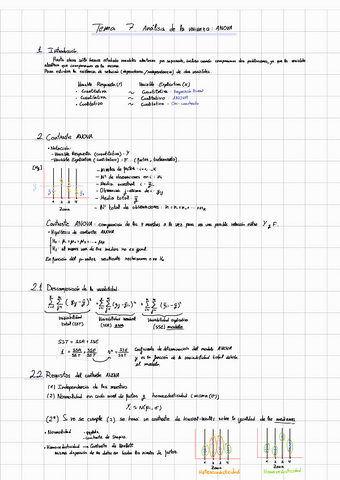 Tema 7. Análisis de la varianza: ANOVA
1. Introducción
Hasta ahora sólo hemos estudiado variables aleatorias por separado, incluso cuando comparamos dos poblaciones, ya que la variable
aleatoria que comparamos es la misma.
Para estudiar la existencia de relación (dependencia/independencia) de dos variables.
Variable Respuesta (Y) Variable Explicativa (X)
• Cuantitativa ~ Cuantitativa: Regresión lineal
• Cuantitativa ~ Cualitativa: ANOVA
• Cualitativa ~ Cualitativa: Chi-cuadrado
2. Contraste ANOVA
• Notación:
- Variable Respuesta (cuantitativa): Y
- Variable Explicativa (cualitativa): F (factor, tratamiento).
- Niveles de factor: i=1,...,k
- Nº de observaciones en i: nᵢ
- Media muestral i: ȳᵢ.
- Observación j-ésima de i: yᵢⱼ
- Media total: ȳ
- Nº total de observaciones: n = n₁ + n₂ + ... + nₖ
Zona
Contraste ANOVA: comparación de las k muestras a la vez para ver una posible relación entre Y y F.
• Hipótesis de contraste ANOVA
H₀: μ₁ = μ₂ = ... = μₖ
H₁: al menos una de las medias no es igual.
En función del p-valor rechazamos o no H₀
2.1 Descomposición de la variabilidad
Variabilidad total (SST)
Variabilidad residual (SSR)
Variabilidad explicativa (SSE) modelo
SST = SSR + SSE
Coeficiente de determinación del modelo ANOVA
y es la fracción de la variabilidad total debida
al modelo
2.2 Requisitos del contraste ANOVA
(1) Independencia de las muestras
(2) Normalidad en cada nivel de factor y homocedasticidad (misma σ)
Yᵢ ~ N(μᵢ, σ)
(2*) Si no se cumple (2) se hace un contraste de Kruskal-Wallis sobre la igualdad de las medianas
• Normalidad
- contraste de Shapiro
• Homocedasticidad → Contraste de Bartlett
misma dispersión de los datos en todos los niveles de factor.
Zona
Heterocedasticidad
Zona
Homocedasticidad